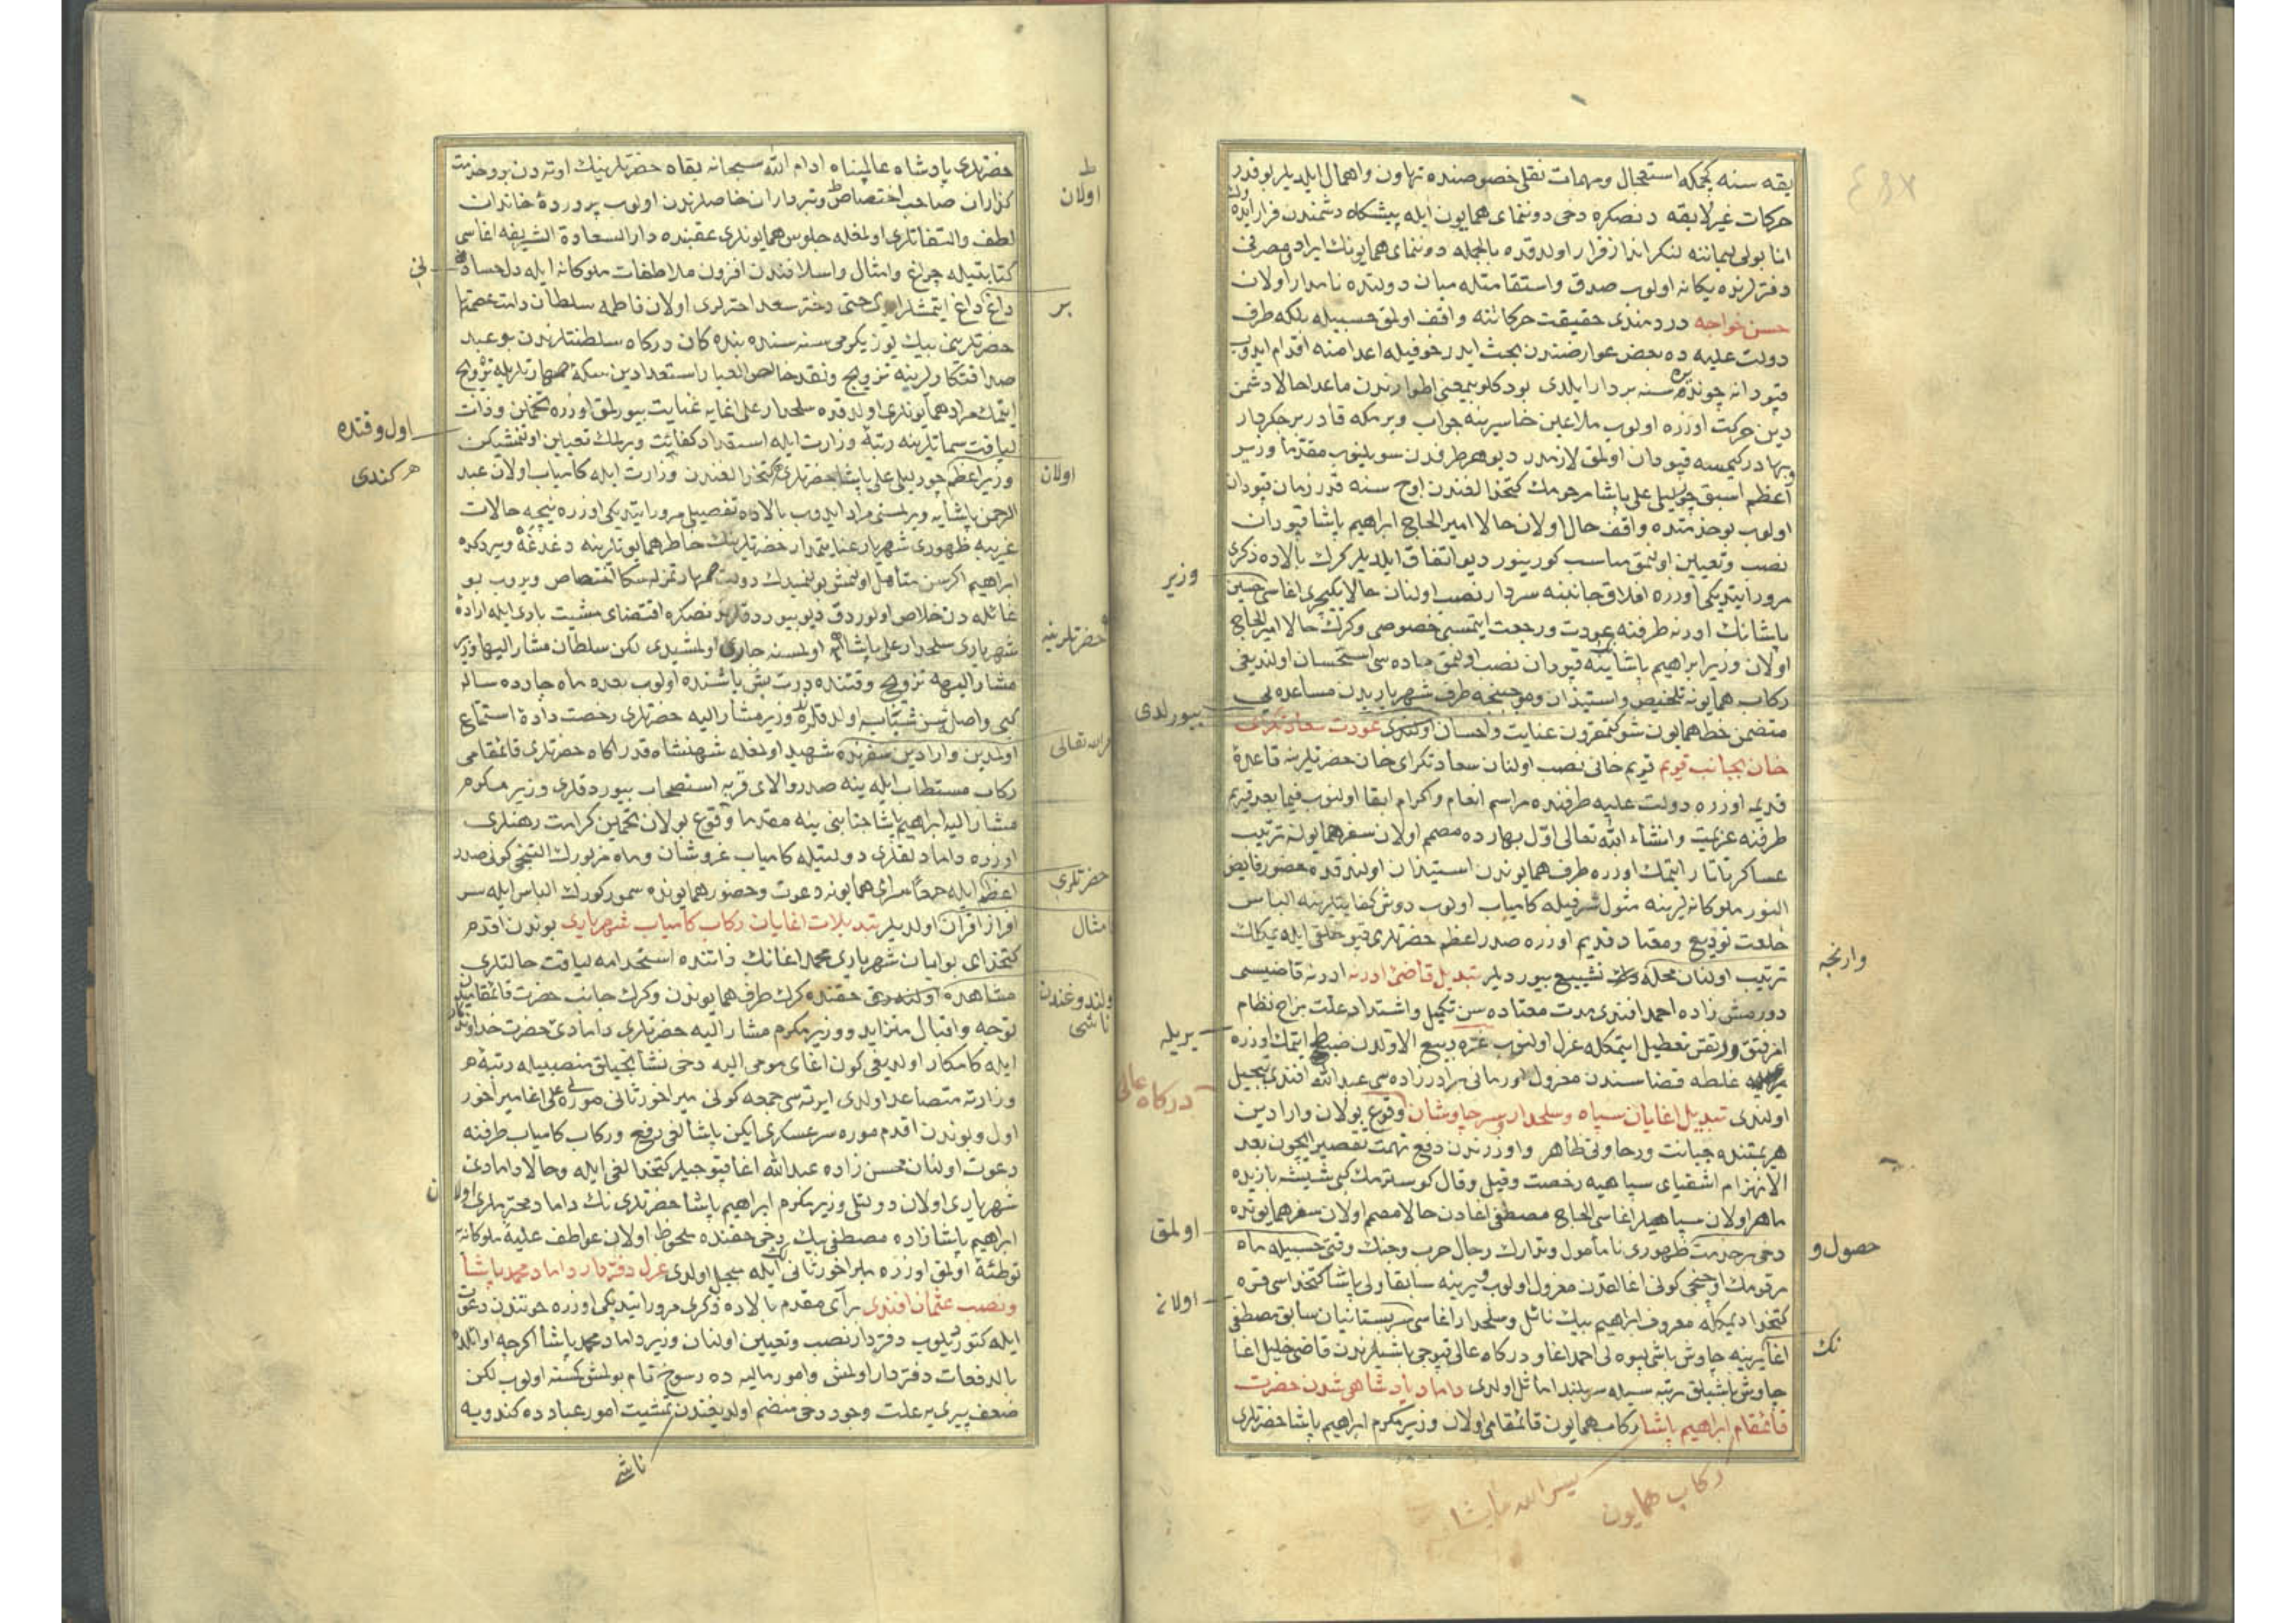 يقه سنه كچمكه استعجال ومهمات نقلى خصوصنده تهاون واهمال ايلديلر بو قدر
حركات غير لايقه دنصكره دخى دوننماى همايون ايله پيشكاه دشمندن فرار ايدوب
انابولى ليماننه لنكر انداز فرار اولدقده بالجمله دوننماى همايونك ايراد ومصرفى
دفترلرنده يكانه اولوب صدق واستقامتله ميان دولتده نامدار اولان
حسن خواجه دردمندى حقيقت حركاتنه واقف اولمق حسبيله بلكه طرف
دولت عليه ده بعض عوارضندن بحث ايدر خوفيله اعدامنه اقدام ايدوب
قپودانه چوندره سنه بردار ايلدى بودكلو بيمعنى اطوارندن ماعدا حالا دشمن
دين حركت اوزره اولوب ملاعين خاسرينه جواب ويرمكه قادر بر جكردار
وبهادر كيمسه قپودان اولمق لازمدر ديو هر طرفدن سويلنوب مقدما وزير
اعظم اسبق چورليلى على پاشا مرحومك كتخدالغندن اوچ سنه قدر زمان قپودان
اولوب بو خدمتده واقف حال اولان حالا امير الحاج ابراهيم پاشا قپودان
نصب وتعيين اولنمق مناسب كورينور ديو اتفاق ايلديلر كرك بالاده ذكرى
مرور ايتديكى اوزره افلاق جانبنه سردار نصب اولنان حالا يكيچرى اغاسى حسين
وزير
پاشانك ادرنه طرفنه عودت ورجعت ايتمسى خصوصى وكرك حالا امير الحاج
اولان وزير ابراهيم پاشا ينه قپودان نصب اولنمق ماده سى استحسان اولنديغى
ركاب همايونه تلخيص واستيذان وموجبنجه طرف شهرياريدن مساعده يى
بيورلدى
متضمن خط همايون شوكتمقرون عنايت واحسان اولندى عودت سعادتكراى
خان بجانب قريم قريم خانى نصب اولنان سعادتكراى خان حضرتلرينه قاعدۀ
قديمه اوزره دولت عليه طرفنده مراسم انعام واكرام ابقا اولنوب فيما بعد قريم
طرفنه عزيمت وانشاء الله تعالى اول بهارده مصمم اولان سفر همايونه ترتيب
عساكر تاتار ايتمك اوزره طرف همايوندن استيذان اولندقده حضور فايض
النور ملوكانه لرينه مثول شرفيله كامياب اولوب دوش كفايتلرينه الباس
خلعت توديع ومعتاد قديم اوزره صدر اعظم حضرتلرى قپو خلقى ايله
وارنجه
ترتيب اولنان محله دك تشييع بيورديلر تبديل قاضئ ادرنه ادرنه قاضيسى
دورمش زاده احمد افندى مدت معتاده سن تكميل واشتداد علت مزاج نظام
امر فتق ورتقى تعطيل ايتمكله عزل اولنوب غره ربيع الاولدن ضبط ايتمك اوزره
بريله
غلطه قضاسندن معزول اورمانى برادر زاده سى عبد الله افندى تبجيل
دركاه عالى
اولندى تبديل اغايان سپاه وسلحدار وسر چاوشان وقوع بولان وارادين
هزيمتنده جبانت ورخاوتى ظاهر واوزرندن دفع تهمت تقصير ايچون بعد
الانهزام اشقياى سپاهيه رخصت وقيل وقال كوسترمك كبى شيشه بازيده
ماهر اولان سپاهيلر اغاسى الحاج مصطفى اغادن حالا مصمم اولان سفر همايونده
اولمق
دخى بر خدمت ظهورى نامأمول وتدارك رجال حرب وجنك وقتى حسبيله ماه
حصول و
مرقومك اوچنجى كونى اغالقدن معزول اولوب يرينه سابقا ولى پاشا كتخداسى قره
اولانه
كتخدا ديمكله معروف ابراهيم بيك نائل وسلحدار اغاسى سر بستانيان سابق مصطفى
اغا يرينه چاوش باشى پيوه لى احمد اغا ودركاه عالى قپوجى باشيلرندن قاضى خليل اغا
نك
چاوش باشيلق رتبه سيله سربلند اماثل اولدى داماد پادشاهى شدن حضرت
قائمقام ابراهيم پاشا ركاب همايون قائمقامى اولان وزير مكرم ابراهيم پاشا حضرتلرى
ركاب همايون
حضرتلرى پادشاه عالمپناه ادام الله سبحانه بقاه حضرتلرينك اوته دن برو خدمت
كذاران صاحب اختصاص وتبرداران خاصلرندن اولوب پروردۀ خاندان
اولان
لطف والتفاتلرى اولمغله جلوس همايونلرى عقبنده دار السعادة الشريفه اغاسى
كتابتيله چراغ وامثال واسلافندن افزون ملاطفات ملوكانه ايله دل حساد
داغ داغ ايتمشلر ايدى حتى دختر سعد اخترلرى اولان فاطمه سلطان دامت عصمتها
بر
حضرتلرينى بيك يوز يكرمى سنه سنده بندكان دركاه سلطنتلرندن بو عبد
صداقتكارلرينه تزويج ونقد خالص العيار استعدادين سكۀ صهارتلريله ترويج
ايتمك مراد همايونلرى اولدقده سلحدار على اغايه عنايت بيورلمق اوزره تخمين وذات
اول وقتده
لياقت سماتلرينه رتبۀ وزارت ايله استقداد كفايت ويرلمك تعيين اولنمشيكن
هر كندى
وزير اعظم چورليلى على پاشا حضرتلرى كتخدالغندن وزارت ايله كامياب اولان عبد
اولان
الرحمن پاشايه ويرلمسنى مراد ايدوب بالاده تفصيلى مرور ايتديكى اوزره نيچه حالات
غريبه ظهورى شهريار عنايتمدار حضرتلرينك خاطر همايونلرينه دغدغه ويردكده
ابراهيم اكر سن متاهل اولمش بولنميدك دولت صهارتمز له سكا اختصاص ويروب بو
غائله دن خلاص اولوردق ديو بيوردقلرندنصكره اقتضاى مشيت بارى ايله ارادۀ
شهريارى سلحدار على پاشايه اولمسنه جارى اولمشيدى لكن سلطان مشار اليها وزير
حضرتلرينه
مشار اليهه تزويج وقتنده درت بش ياشنده اولوب بعده ماه چارده ساله
كبى واصل سن شباب اولدقلرنده وزير مشار اليه حضرتلرى رخصت دادۀ استماع
اولمدين وارادين سفرنده شهيد اولمغله شهنشاه قدر اكاه حضرتلرى قائمقامى
ركاب مستطاب ايله ينه صدر والاى قربه استصحاب بيوردقلرى وزير مكرم
مشار اليه ابراهيم پاشا جنابنى ينه مقدما وقوع بولان تخمين كرامت رهنلرى
اوزره داماد لقلرى دولتيله كامياب عز وشان وماه مزبورك التنجى كونى صدر
اعظم ايله معا سراى همايونه دعوت وحضور همايونده سمور كورك الباس ايله سر
حضرتلرى
افراز اقران اولديلر تبديلات اغايان ركاب كامياب شهريارى بوندن اقدم
امثال
كتخداى بوابان شهريارى محمد اغانك ذاتنده استخدامه لياقت حالتلرى
مشاهده اولندوغى حقنده كرك طرف همايوندن وكرك جانب حضرت قائمقاميدن
اولندوغندن ناشى
توجه واقبال متزايد ووزير مكرم مشار اليه حضرتلرى دامادئ حضرت خداوندكار
ايله كامكار اولديغى كون اغاى مومى اليه دخى نشانجيلق منصبيله رتبۀ
وزارته متصاعد اولدى ايرته سى جمعه كونى ميراخور ثانى موره لى على اغا ميراخور
اول وبوندن اقدم موره سرعسكرى ايكن پاشالغى رفع وركاب كامياب طرفنه
دعوت اولنان محسن زاده عبد الله اغا قپوجيلر كتخدالغى ايله وحالا دامادئ
شهريارى اولان دولتلى وزير مكرم ابراهيم پاشا حضرتلرى نك داماد محترملرى اولان
ابراهيم پاشا زاده مصطفى بيك دخى حقنده ملحوظ اولان عواطف عليۀ ملوكانه
توطئة اولمق اوزره ميراخور ثانيلك ايله مبجل اولدى عزل دفتردار داماد محمد پاشا
ونصب عثمان افندى برآى مقدم بالاده ذكرى مرور ايتديكى اوزره خوتندن دعوت
ايله كتوريلوب دفتردار نصب وتعيين اولنان وزير داماد محمد پاشا اكرچه اوائلده
بالدفعات دفتردار اولمش وامور ماليه ده رسوخ تام بولمش كسنه اولوب لكن
ضعف پيرى يه علت وجود دخى منضم اولديغندن تمشيت امور عبادده كندويه
ناشى